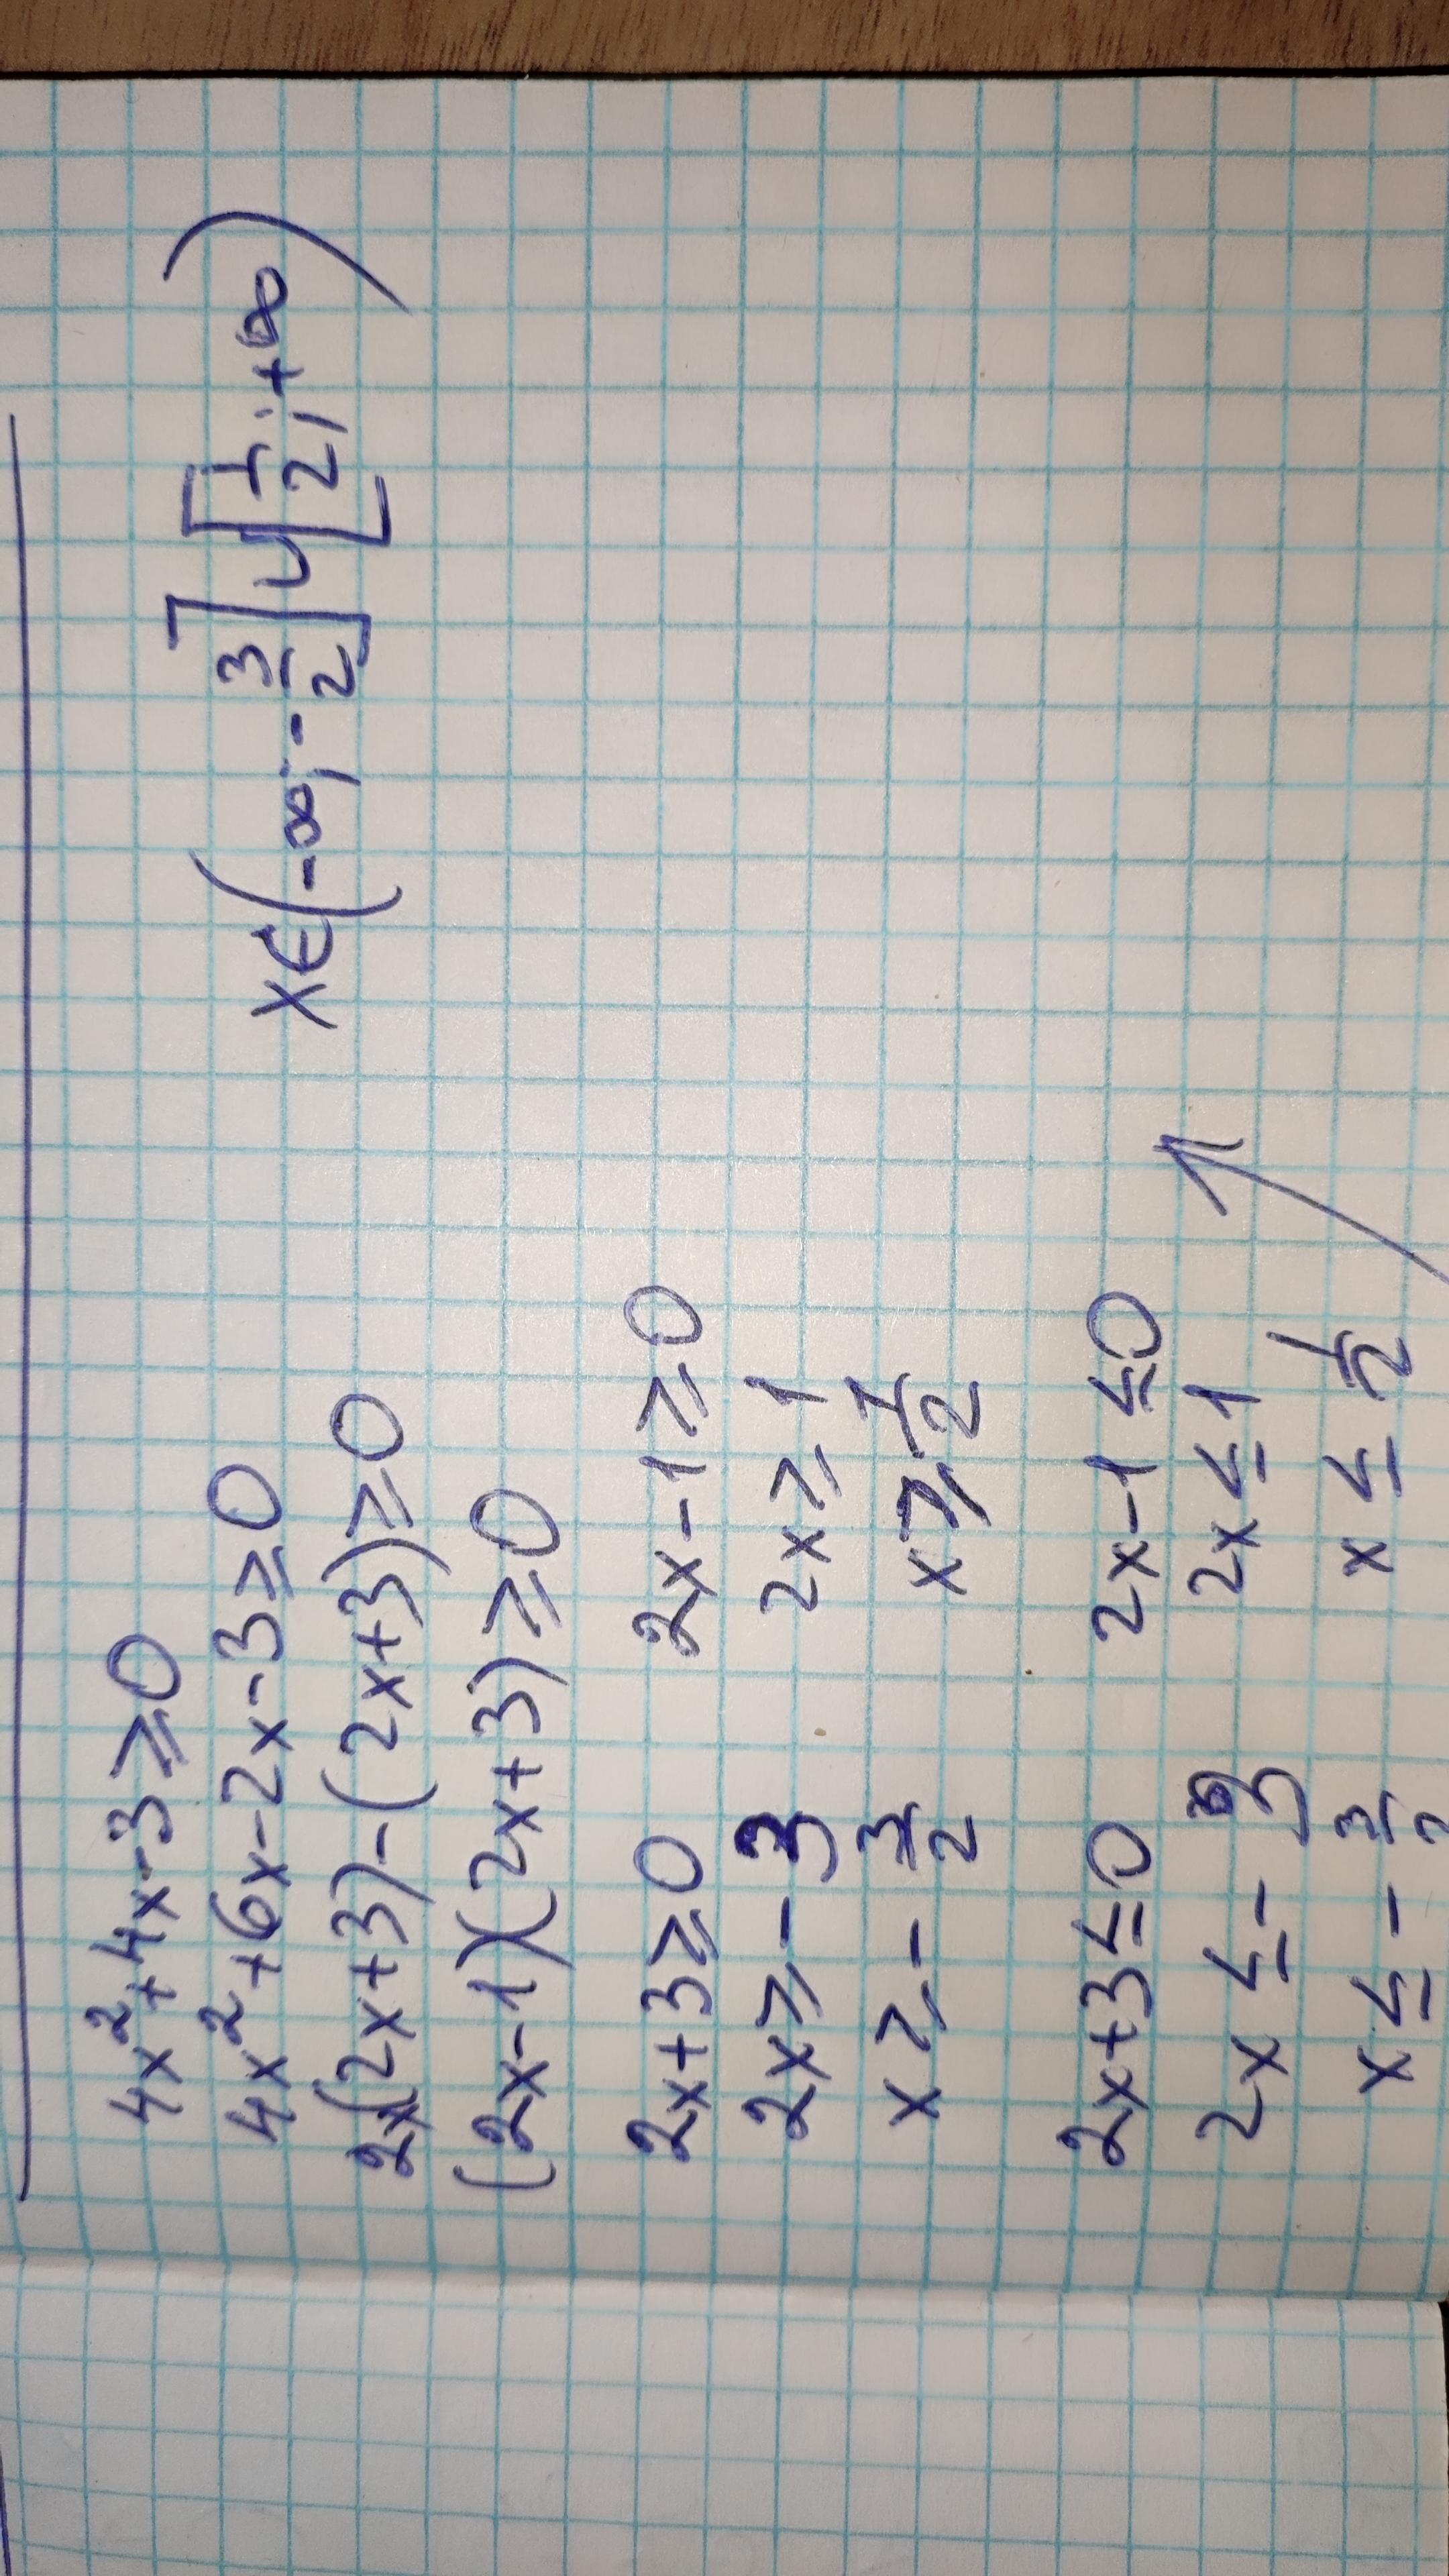 4x²+4x-3≥0
4x²+6x-2x-3≥0
2x(2x+3)-(2x+3)≥0
(2x-1)(2x+3)≥0
2x+3≥0 2x-1≥0
2x≥-3 2x≥1
x≥-3/2 x≥1/2
2x+3≤0 2x-1≤0
2x≤-3 2x≤1
x≤-3/2 x≤1/2
x∈(-∞;-3/2]∪[1/2;+∞)